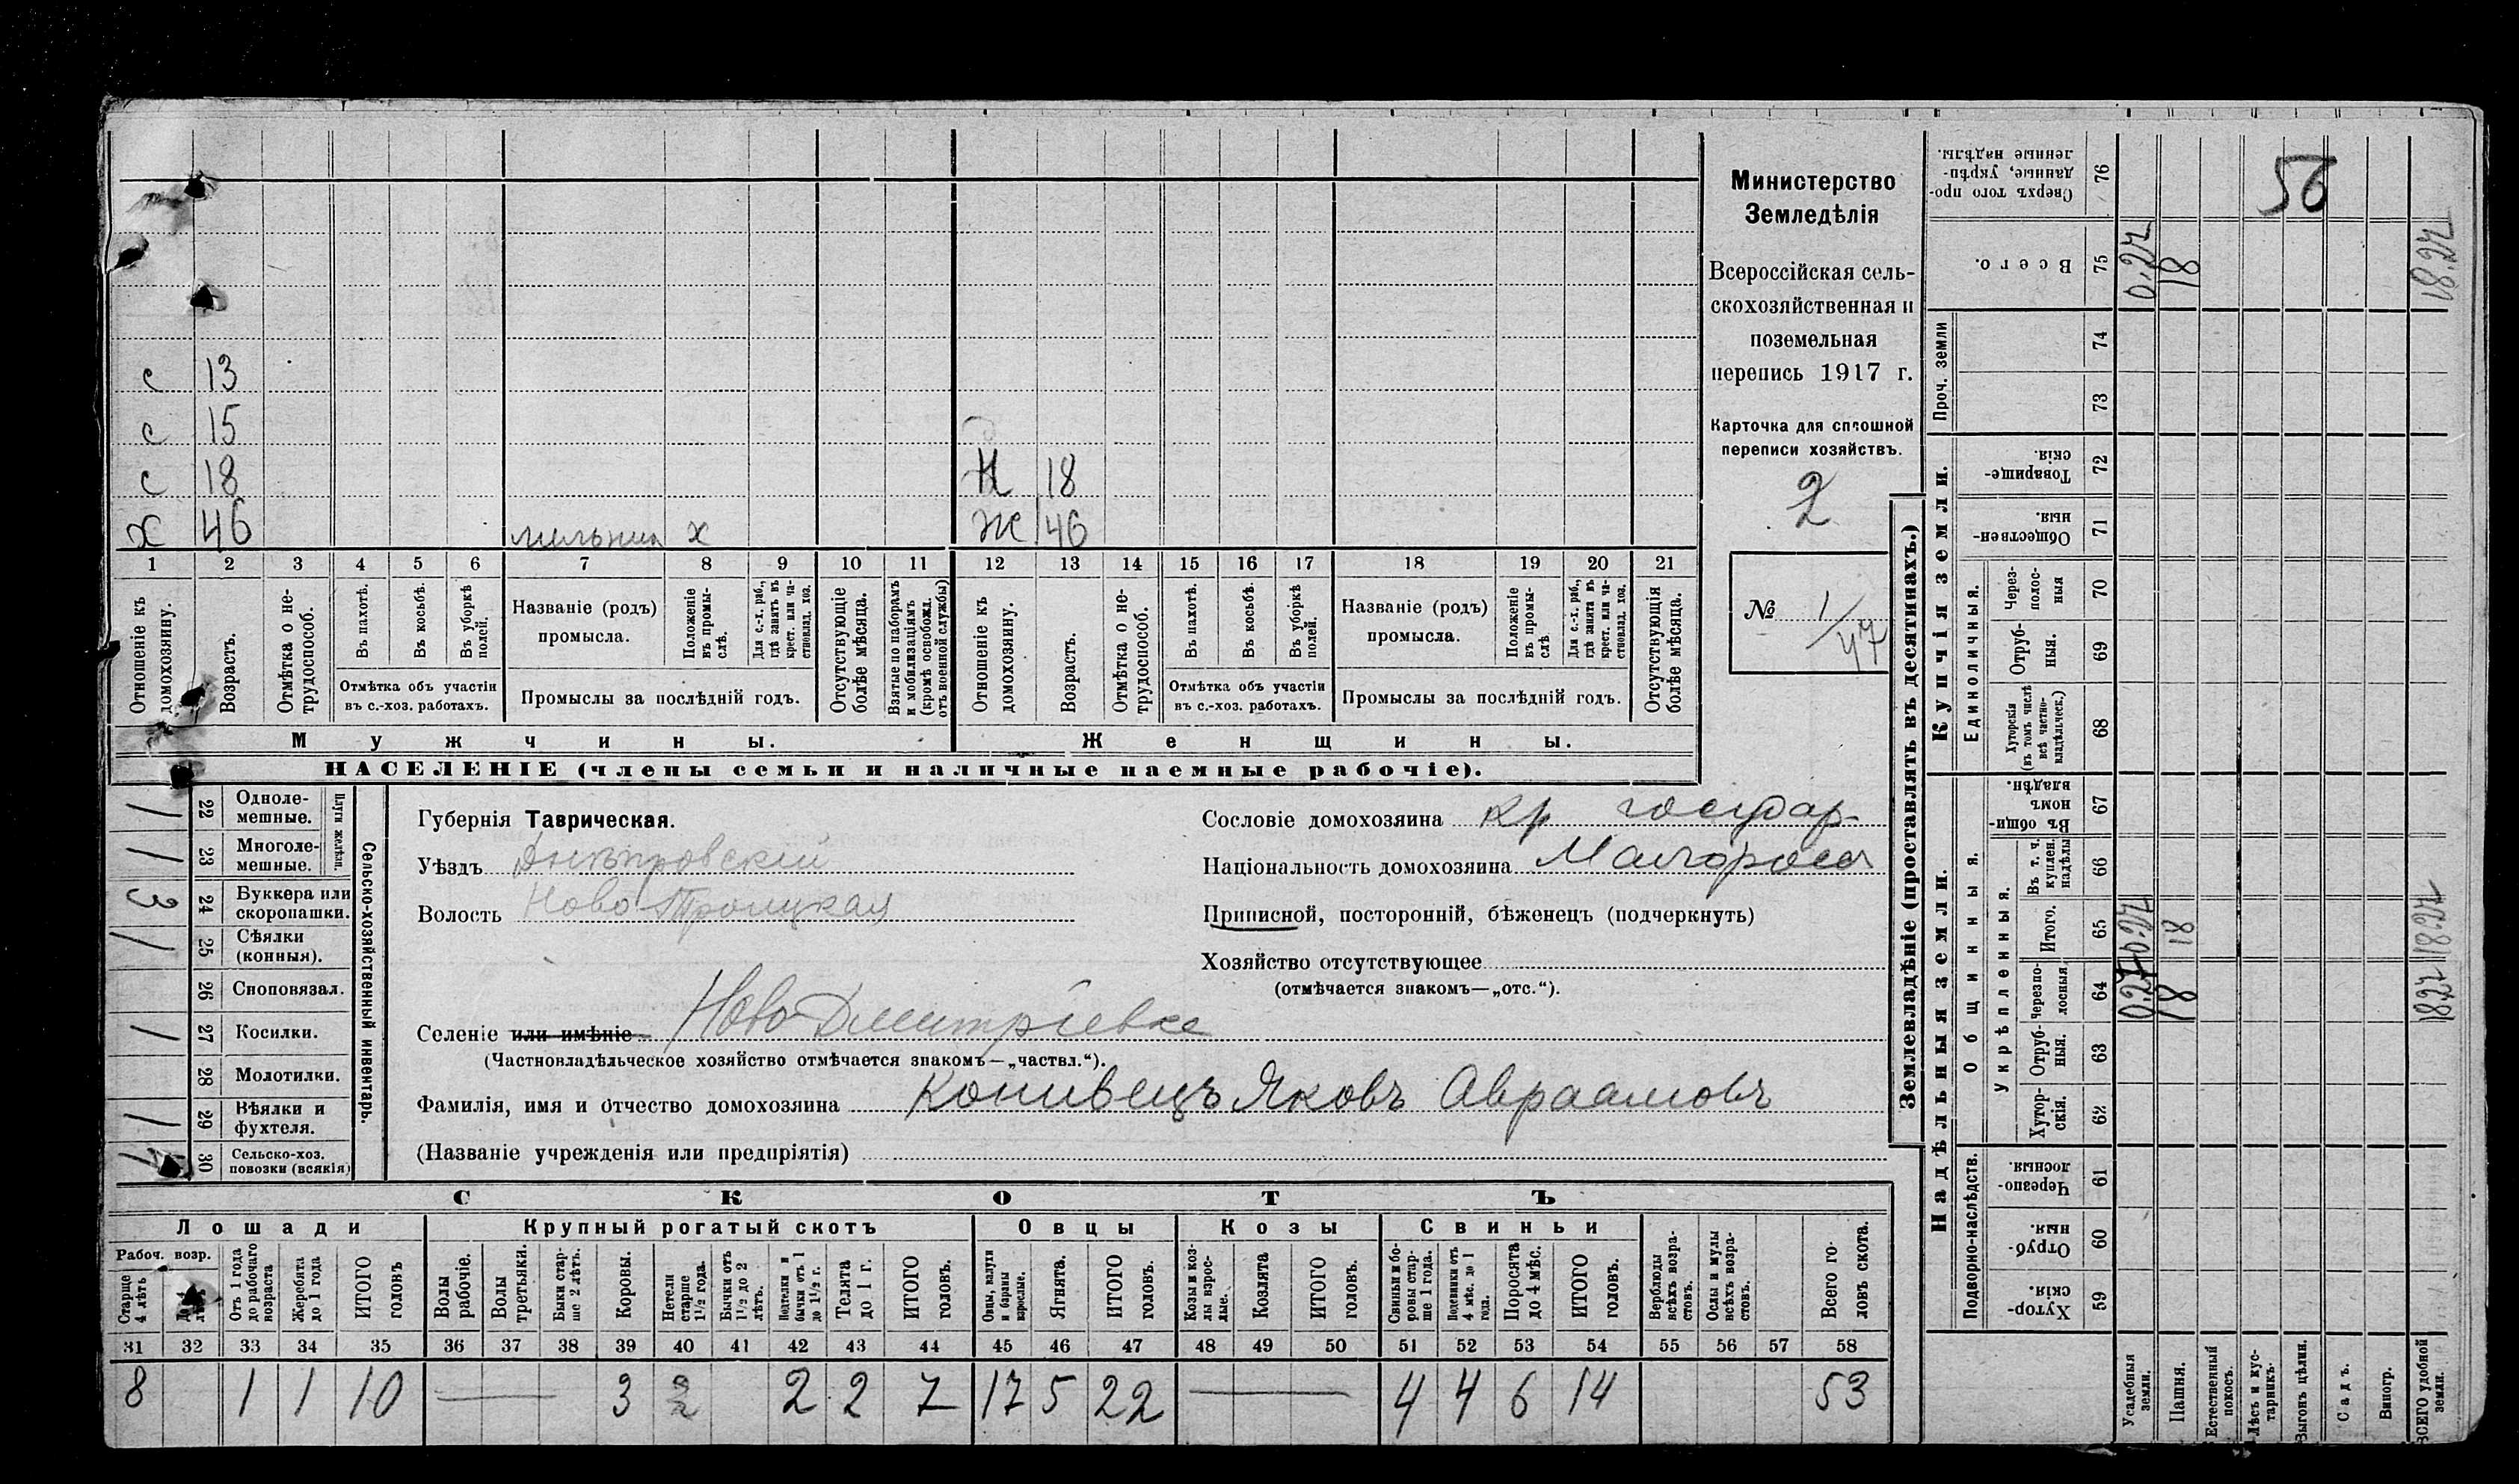 Министерство
Земледѣлія
Всероссійская сель-
скохозяйственная и
поземельная
перепись 1917 г.
Карточка для сплошной
переписи хозяйствъ.
2
№ 1/47
с 13
с 15
с 18 18
х 46 х Ж 46
1 2 3 4 5 6 7 8 9 10 11 12 13 14 15 16 17 18 19 20 21
Отношеніе къ домохозяину.
Возрастъ.
Отмѣтка о не-трудоспособ.
Въ пахотѣ.
Въ косьбѣ.
Въ уборкѣ полей.
Отмѣтка объ участіи
въ с.-хоз. работахъ.
Названіе (родъ)
промысла.
Положеніе въ промы-слѣ.
Для с.-х. раб., гдѣ занятъ въ крест. или ча-стновлад. хоз.
Промыслы за послѣдній годъ.
Отсутствующіе болѣе мѣсяца.
Взятые по наборамъ и мобилизаціямъ (кромѣ освобожд. отъ военной службы)
Отношеніе къ домохозяину.
Возрастъ.
Отмѣтка о не-трудоспособ.
Въ пахотѣ.
Въ косьбѣ.
Въ уборкѣ полей.
Отмѣтка объ участіи
въ с.-хоз. работахъ.
Названіе (родъ)
промысла.
Положеніе въ промы-слѣ
Для с.-х. раб., гдѣ занята въ крест. или ча-стновлад. хоз.
Промыслы за послѣдній годъ.
Отсутствующія болѣе мѣсяца.
Мужчины. Женщины.
НАСЕЛЕНІЕ (члены семьи и наличные наемные рабочіе).
Сельско-хозяйственный инвентарь.
Плуги желѣзн.
1 22 Одноле-мешные.
1 23 Многоле-мешные.
3 24 Буккера или скоропашки.
1 25 Сѣялки (конныя).
26 Сноповязал.
1 27 Косилки.
28 Молотилки.
1 29 Вѣялки и фухтеля.
30 Сельско-хоз. повозки (всякія)
Губернія Таврическая.
Уѣздъ Днѣпровскій
Волость Ново Троицкая
Сословіе домохозяина кр государ-
Національность домохозяина Малоросс
Приписной, посторонній, бѣженецъ (подчеркнуть)
Хозяйство отсутствующее
(отмѣчается знакомъ—„отс.“).
Селеніе или имѣніе Ново Дмитріевка
(Частновладѣльческое хозяйство отмѣчается знакомъ—„частвл.“).
Фамилія, имя и отчество домохозяина Конивецъ Яковъ Авраамовъ
(Названіе учрежденія или предпріятія)
СКОТЪ
Лошади Крупный рогатый скотъ Овцы Козы Свиньи
Рабоч. возр.
Старше 4 лѣтъ
Отъ 1 года до рабочаго возраста
Жеребята до 1 года
ИТОГО головъ
Волы рабочіе.
Волы третьяки.
Быки стар-ше 2 лѣтъ.
Коровы.
Нетели старше 1½ года.
Бычки отъ 1½ до 2 лѣтъ.
Подтелки и бычки отъ 1 до 1½ г.
Телята до 1 г.
ИТОГО головъ.
Овцы, валухи и бараны взрослые.
Ягнята.
ИТОГО головъ.
Козы и коз-лы взрос-лые.
Козлята
ИТОГО головъ.
Свиньи и бо-ровы стар-ше 1 года.
Подсвинки отъ 4 мѣс. до 1 года.
Поросята до 4 мѣс.
ИТОГО головъ.
Верблюды всѣхъ возра-стовъ.
Ослы и мулы всѣхъ возра-стовъ.
Всего го-ловъ скота.
31 32 33 34 35 36 37 38 39 40 41 42 43 44 45 46 47 48 49 50 51 52 53 54 55 56 57 58
8 1 1 10 — 3 2 2 2 7 17 5 22 — 4 4 6 14 53
Землевладѣніе (проставлять въ десятинахъ.)
56
Сверхъ того про-данные, укрѣп-ленные надѣлы. 76
Всего. 75 0.27 18 18.27
Проч. земли 74 73
Купчія земли.
Товарище-скія. 72
Обществен-ныя. 71
Единоличныя.
Через-полос-ныя 70
Отруб-ныя. 69
Хуторскія (въ томъ числѣ всѣ частно-владѣльческ.) 68
Надѣльныя земли.
Общинныя.
Въ общин-номъ владѣн. 67
Укрѣпленныя.
Въ т. ч. куплен. надѣлы 66
Итого. 65 0.27 18 18.27
Черезпо-лосныя 64 0.27 18 18.27
Отруб-ныя. 63
Хутор-скія. 62
Подворно-наслѣдств.
Черезпо-лосныя. 61
Отруб-ныя. 60
Хутор-скія. 59
Усадебныя земли.
Пашня.
Естественный покосъ.
Лѣсъ и кус-тарникъ.
Выгонъ цѣлин.
Садъ.
Виногр.
ВСЕГО удобной земли.